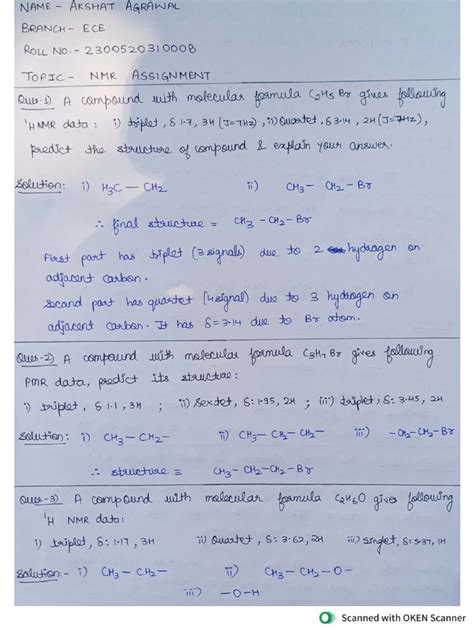 NAME - AKSHAT AGRAWAL
BRANCH - ECE
ROLL NO. - 2300520310008
TOPIC - NMR ASSIGNMENT
Ques-1) A compound with molecular formula C2H5Br gives following
'HNMR data : i) triplet, δ 1.7, 3H (J=7Hz), ii) Quartet, δ 3.14, 2H (J=7Hz),
predict the structure of compound & explain your answer.
Solution: i) H3C - CH2 ii) CH3 - CH2 - Br
∴ final structure = CH3 - CH2 - Br
First part has triplet (3 signals) due to 2 hydragen on
adjacent carbon.
Second part has quartet (4 signal) due to 3 hydrogen on
adjacent carbon. It has δ = 3.14 due to Br atom.
Ques-2) A compound with molecular formula C3H7Br gives following
PMR data, predict its structure:
i) triplet, δ 1.1, 3H ; ii) Sextet, δ: 1.95, 2H ; iii) triplet, δ: 3.45, 2H
Solution: i) CH3 - CH2 - ii) CH3 - CH2 - CH2 - iii) - CH2 - CH2 - Br
∴ structure = CH3 - CH2 - CH2 - Br
Ques-3) A compound with molecular formula C2H6O gives following
'H NMR data:
i) triplet, δ: 1.17, 3H ii) Quartet, δ: 3.62, 2H iii) Singlet, δ: 5.37, 1H
Solution:- i) CH3 - CH2 - ii) CH3 - CH2 - O -
iii) - O - H
Scanned with OKEN Scanner